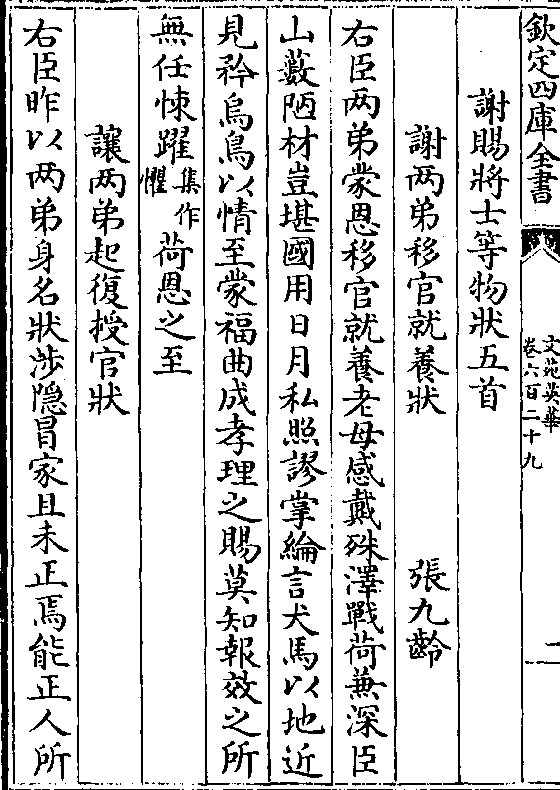 欽定四庫全書
文苑英華
卷六百二十九
一
謝賜將士等物狀五首
謝两弟移官就養狀 張九齡
右臣两弟蒙恩移官就養老母感戴殊澤戰荷兼深臣
山藪陋材豈堪國用日月私照謬掌綸言犬馬以地近
見矜烏鳥以情至蒙福曲成孝理之賜莫知報效之所
無任悚躍集作懼荷恩之至
讓两弟起復授官狀
右臣昨以两弟身名狀涉隠冒家且未正焉能正人所